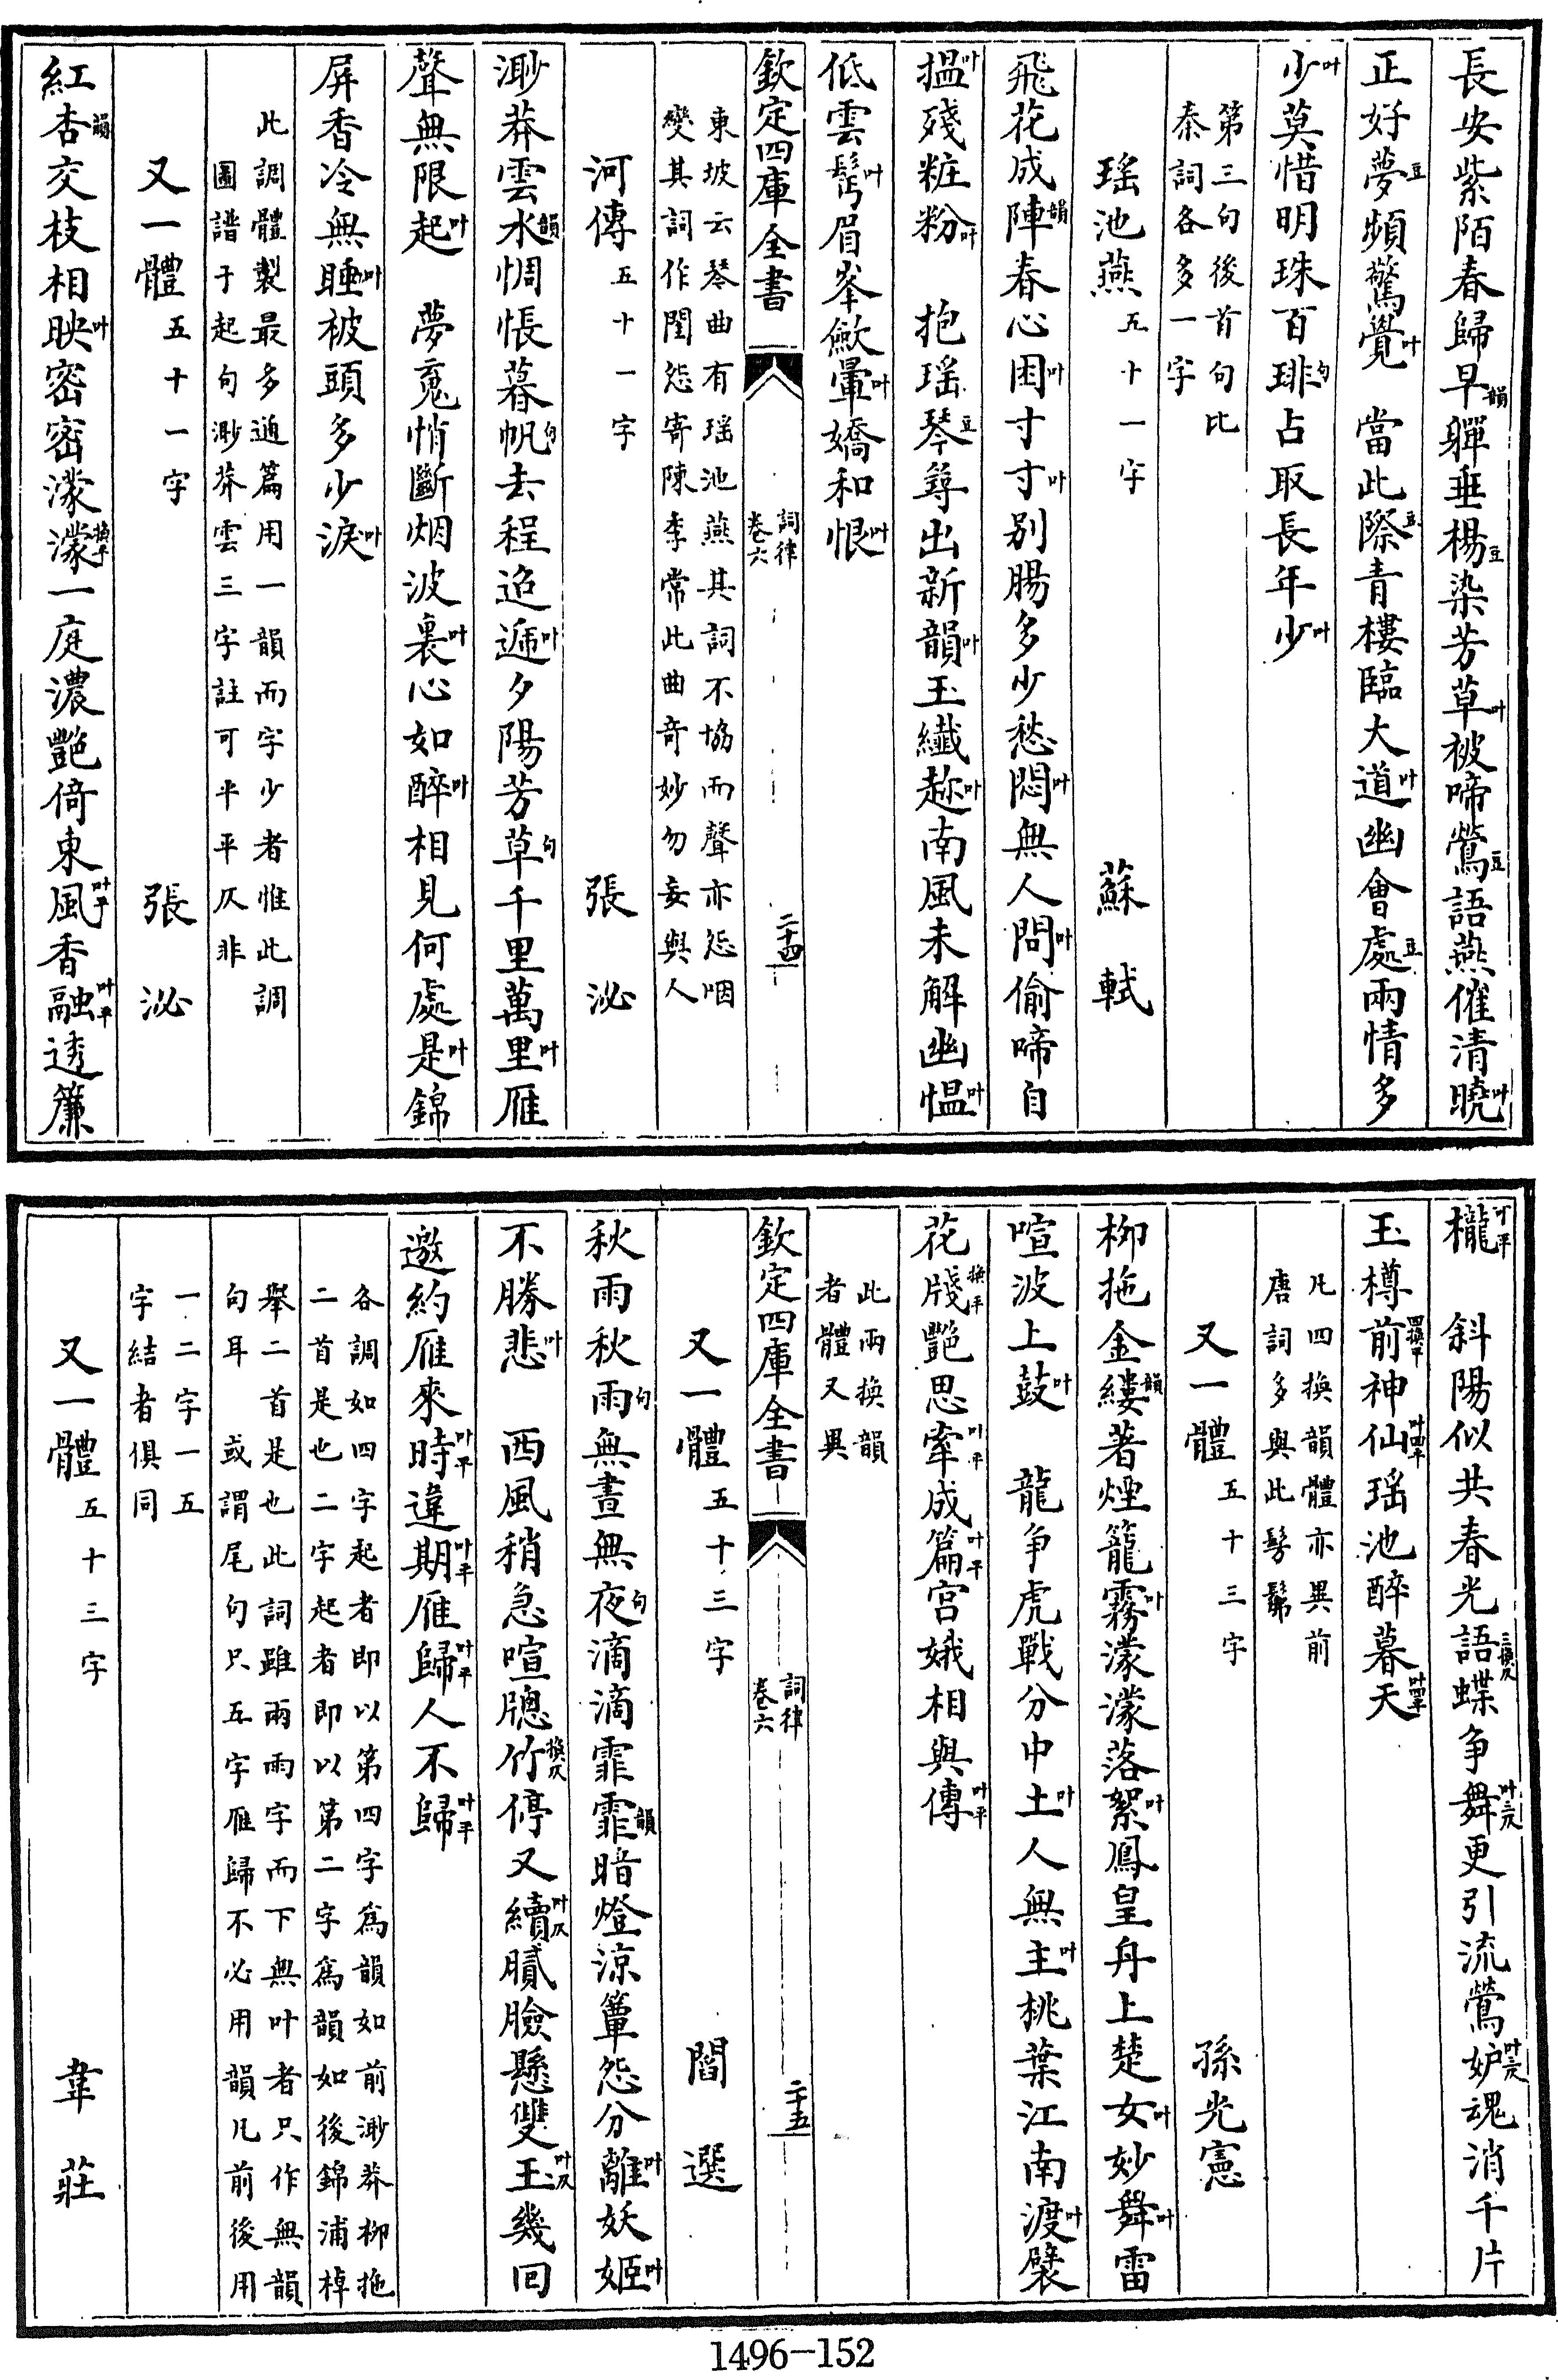 長安紫陌春歸早韻嚲垂楊豆染芳草叶被啼鶯豆語燕催清曉叶
正好夢豆頻驚覺叶　當此際豆青樓臨大道叶幽會處豆兩情多
少叶莫惜明珠百琲句占取長年少叶
第三句後首句比
秦詞各多一字
瑤池燕五十一字　蘇軾
飛花成陣韻春心困叶寸寸叶别腸多少愁悶叶無人問叶偷啼自
搵叶殘粧粉叶　抱瑤琴豆尋出新韻叶玉纖趂叶南風未解幽慍叶
低雲鬟叶眉峯斂暈叶嬌和恨叶
欽定四庫全書　詞律卷六　二十四
東坡云琴曲有瑤池燕其詞不協而聲亦怨咽
變其詞作閨怨寄陳季常此曲奇妙勿妄與人
河傳五十一字　張泌
渺莽雲水韻惆悵暮帆句去程迢遞叶夕陽芳草句千里萬里叶雁
聲無限起叶　夢䰟悄斷烟波裏叶心如醉叶相見何處是叶錦
屏香冷無睡叶被頭多少淚叶
此調體製最多通篇用一韻而字少者惟此調
圖譜于起句渺莽雲三字註可平平仄非
又一體五十一字　張泌
紅杏韻交枝相映叶密密濛濛換平一庭濃艷倚東風叶平香融叶平透簾
櫳叶平　斜陽似共春光語三換仄蝶争舞叶三仄更引流鶯妒叶三仄魂消千片
玉樽前四換平神仙叶四平瑤池醉暮天叶四平
凡四換韻體亦異前
唐詞多與此髣髴
又一體五十三字　孫光憲
柳拖金縷韻著煙籠霧叶濛濛落絮叶鳳皇舟上楚女叶妙舞叶雷
喧波上鼓叶　龍争虎戰分中土叶人無主叶桃葉江南渡叶襞
花牋換平艷思牽叶平成篇叶平宫娥相與傳叶平
此兩換韻
者體又異
欽定四庫全書　詞律卷六　二十五
又一體五十三字　閻選
秋雨秋雨句無晝無夜句滴滴霏霏韻暗燈涼簟怨分離叶妖姬叶
不勝悲叶　西風稍急喧牕竹換仄停又續叶仄膩臉懸雙玉叶仄幾回
邀約雁來時叶平違期叶平雁歸叶平人不歸叶平
各調如四字起者即以第四字為韻如前渺莽柳拖
二首是也二字起者即以第二字為韻如後錦浦棹
舉二首是也此詞雖兩雨字而下無叶者只作無韻
句耳　或謂尾句只五字雁歸不必用韻凡前後用
一二字一五
字結者俱同
又一體五十三字　韋莊
1496-152